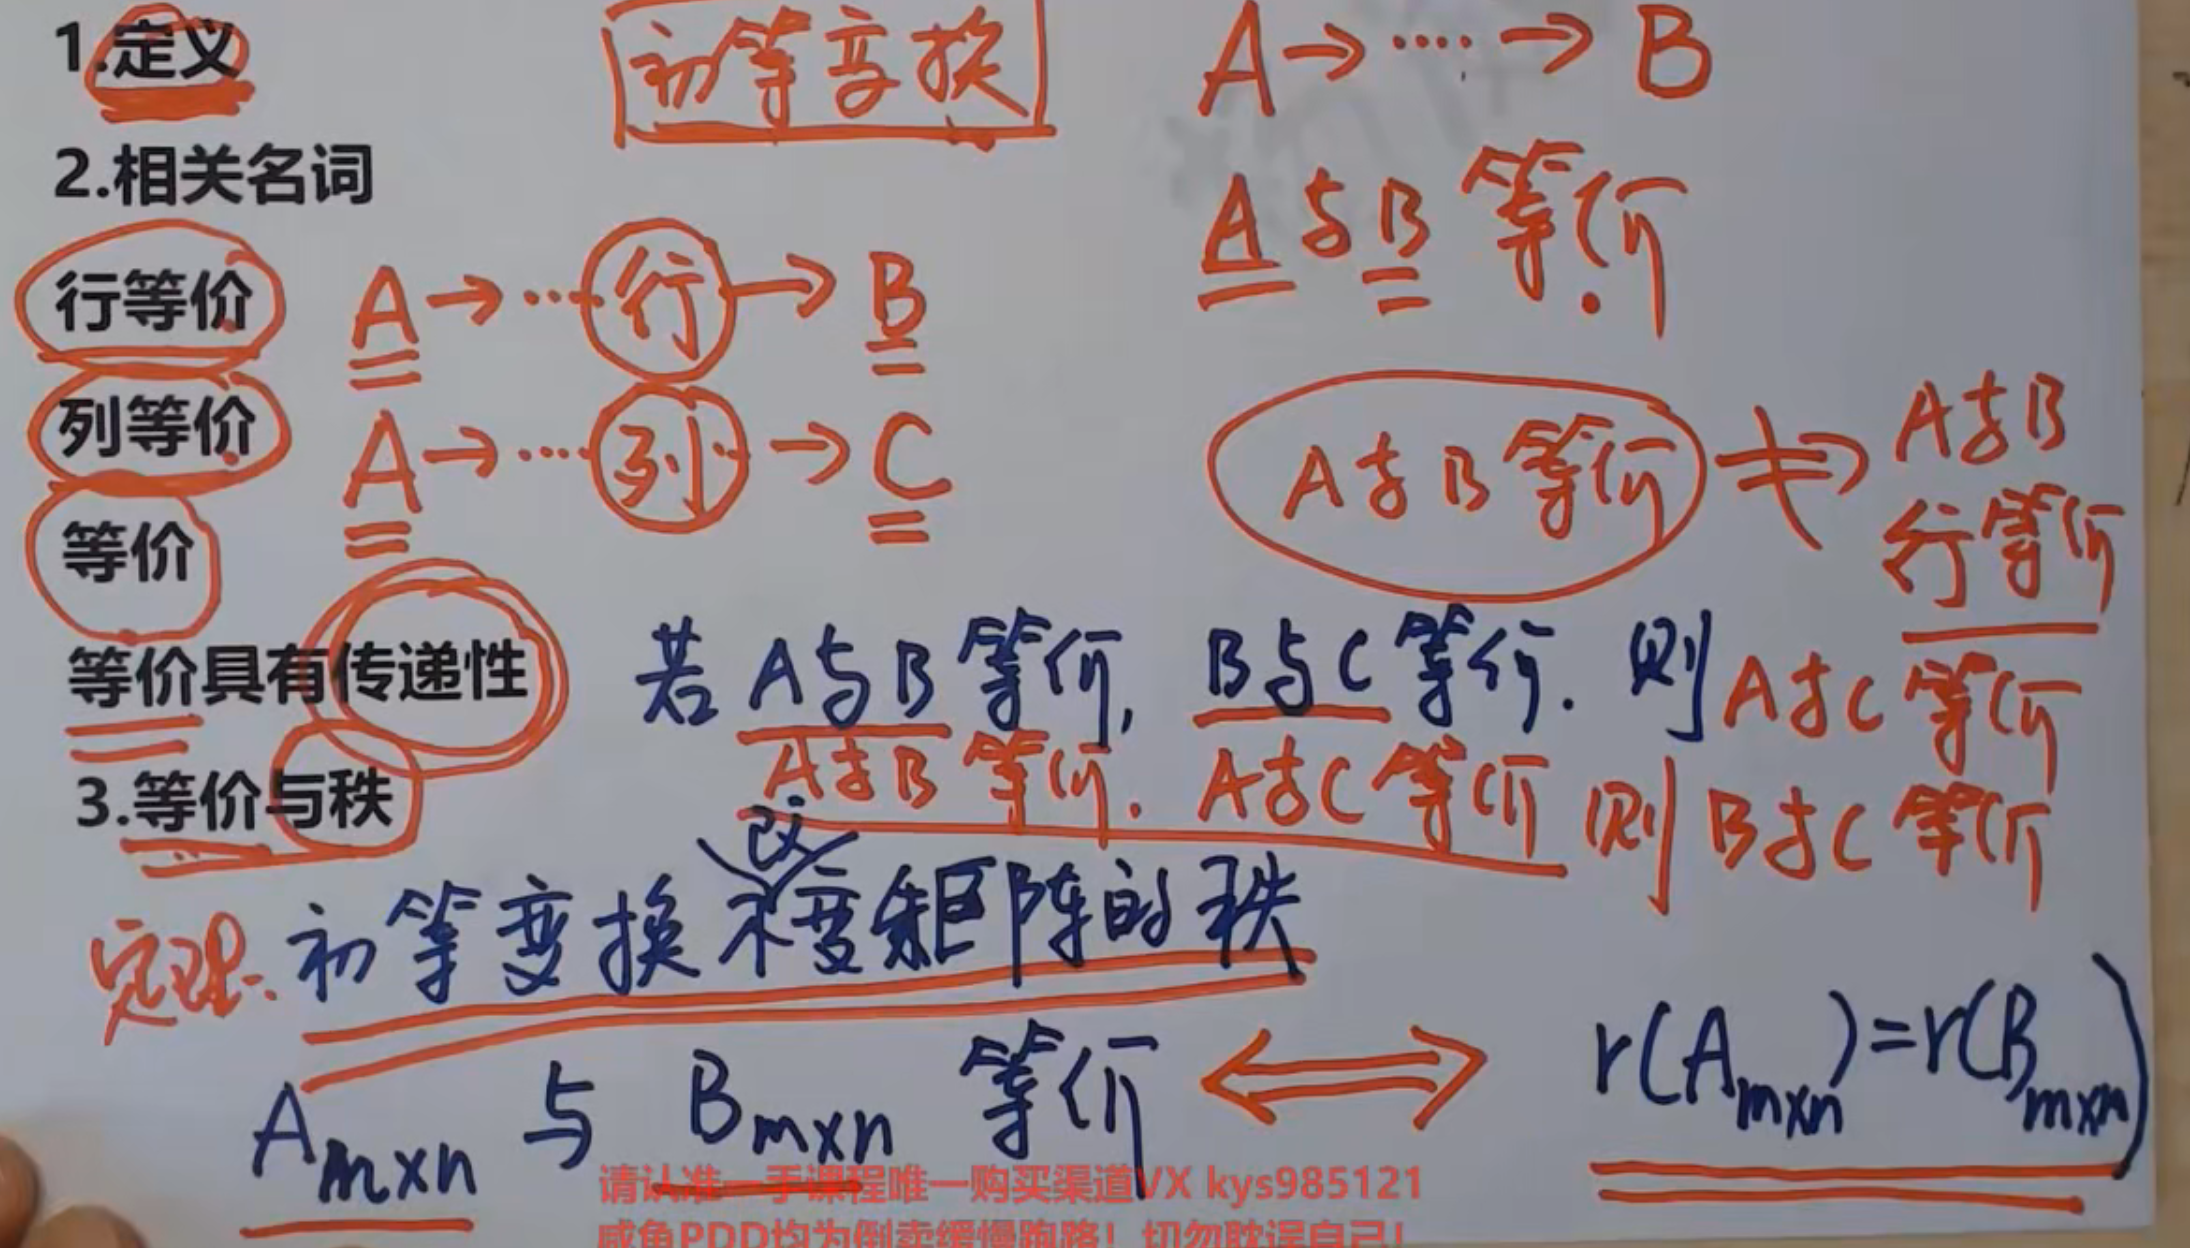 1.定义
初等变换
A→····→B
2.相关名词
A与B等价
行等价 A→···行→B
列等价 A→···列→C
A与B等价 ⇏ A与B
行等价
等价
等价具有传递性
若A与B等价, B与C等价. 则A与C等价
A与B等价. A与C等价 则B与C等价
3.等价与秩
改
定理: 初等变换不变矩阵的秩
Am×n 与 Bm×n 等价 ⟺ r(Am×n)=r(Bm×n)
请认准一手课程唯一购买渠道VX kys985121
咸鱼PDD均为倒卖缓慢跑路！切勿耽误自己！